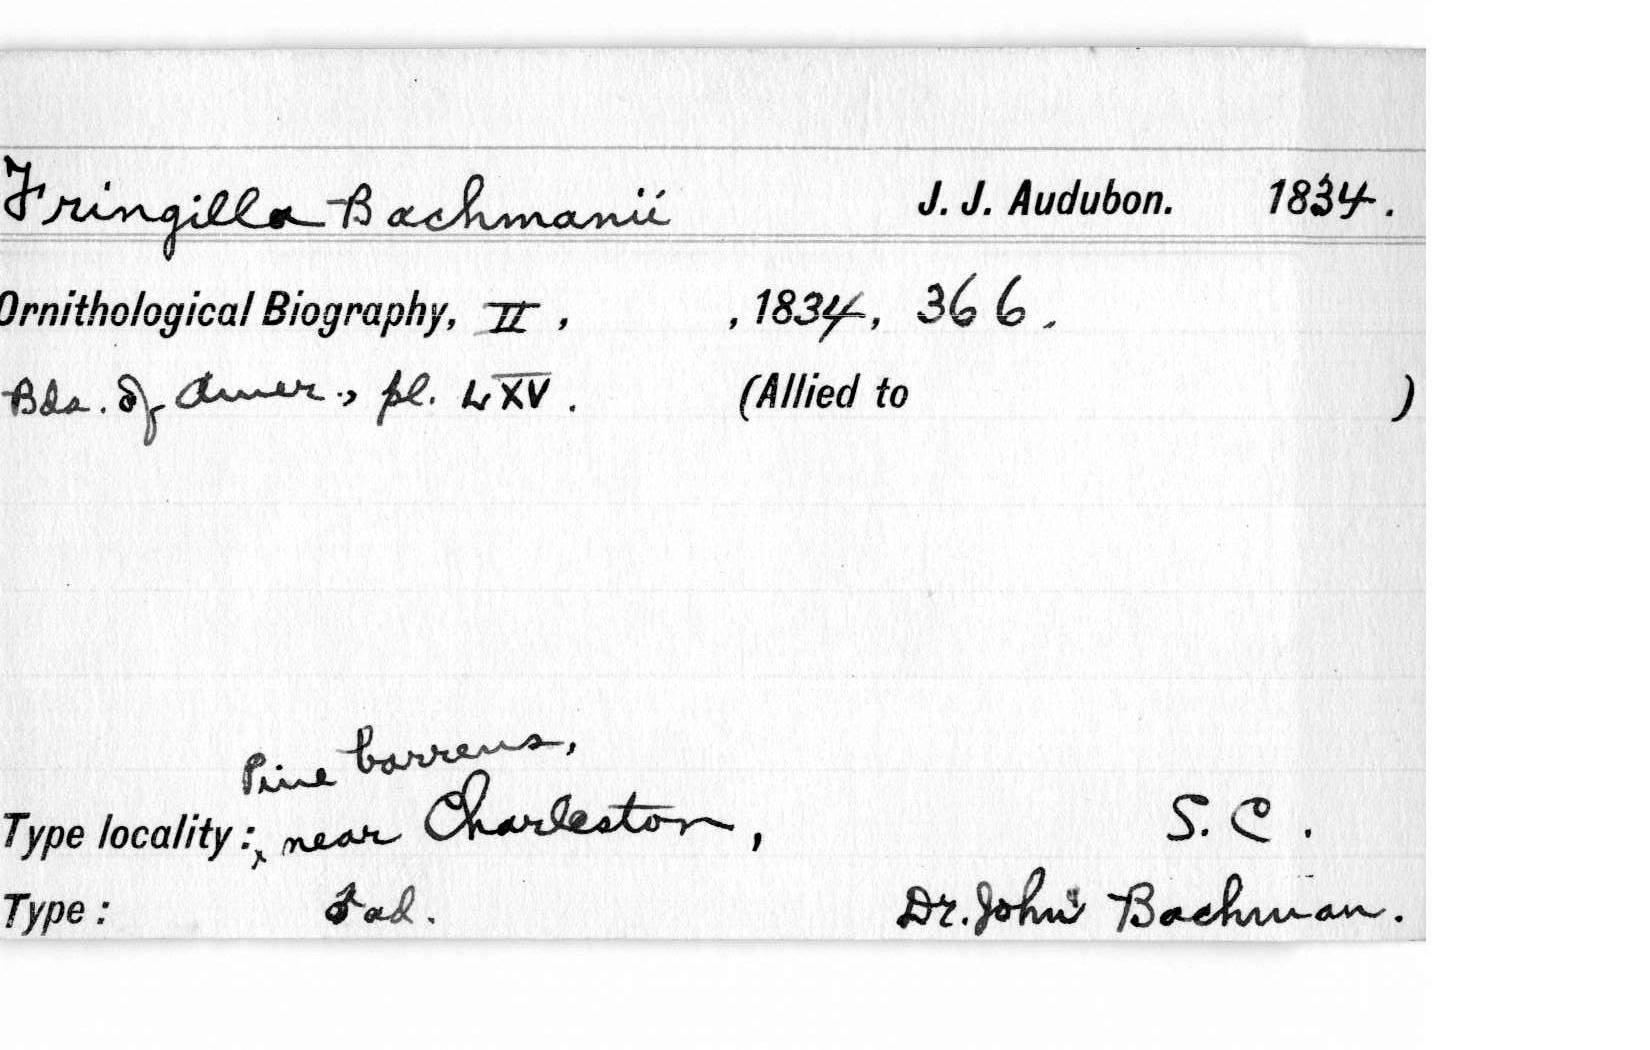 Fringilla Bachmanii J. J. Audubon. 1834.
Ornithological Biography, II, , 1834, 366.
Bds. of Amer., pl. LXV. (Allied to )
Pine barrens,
Type locality: near Charleston, S. C.
Type: ♂ ad. Dr. John Bachman.